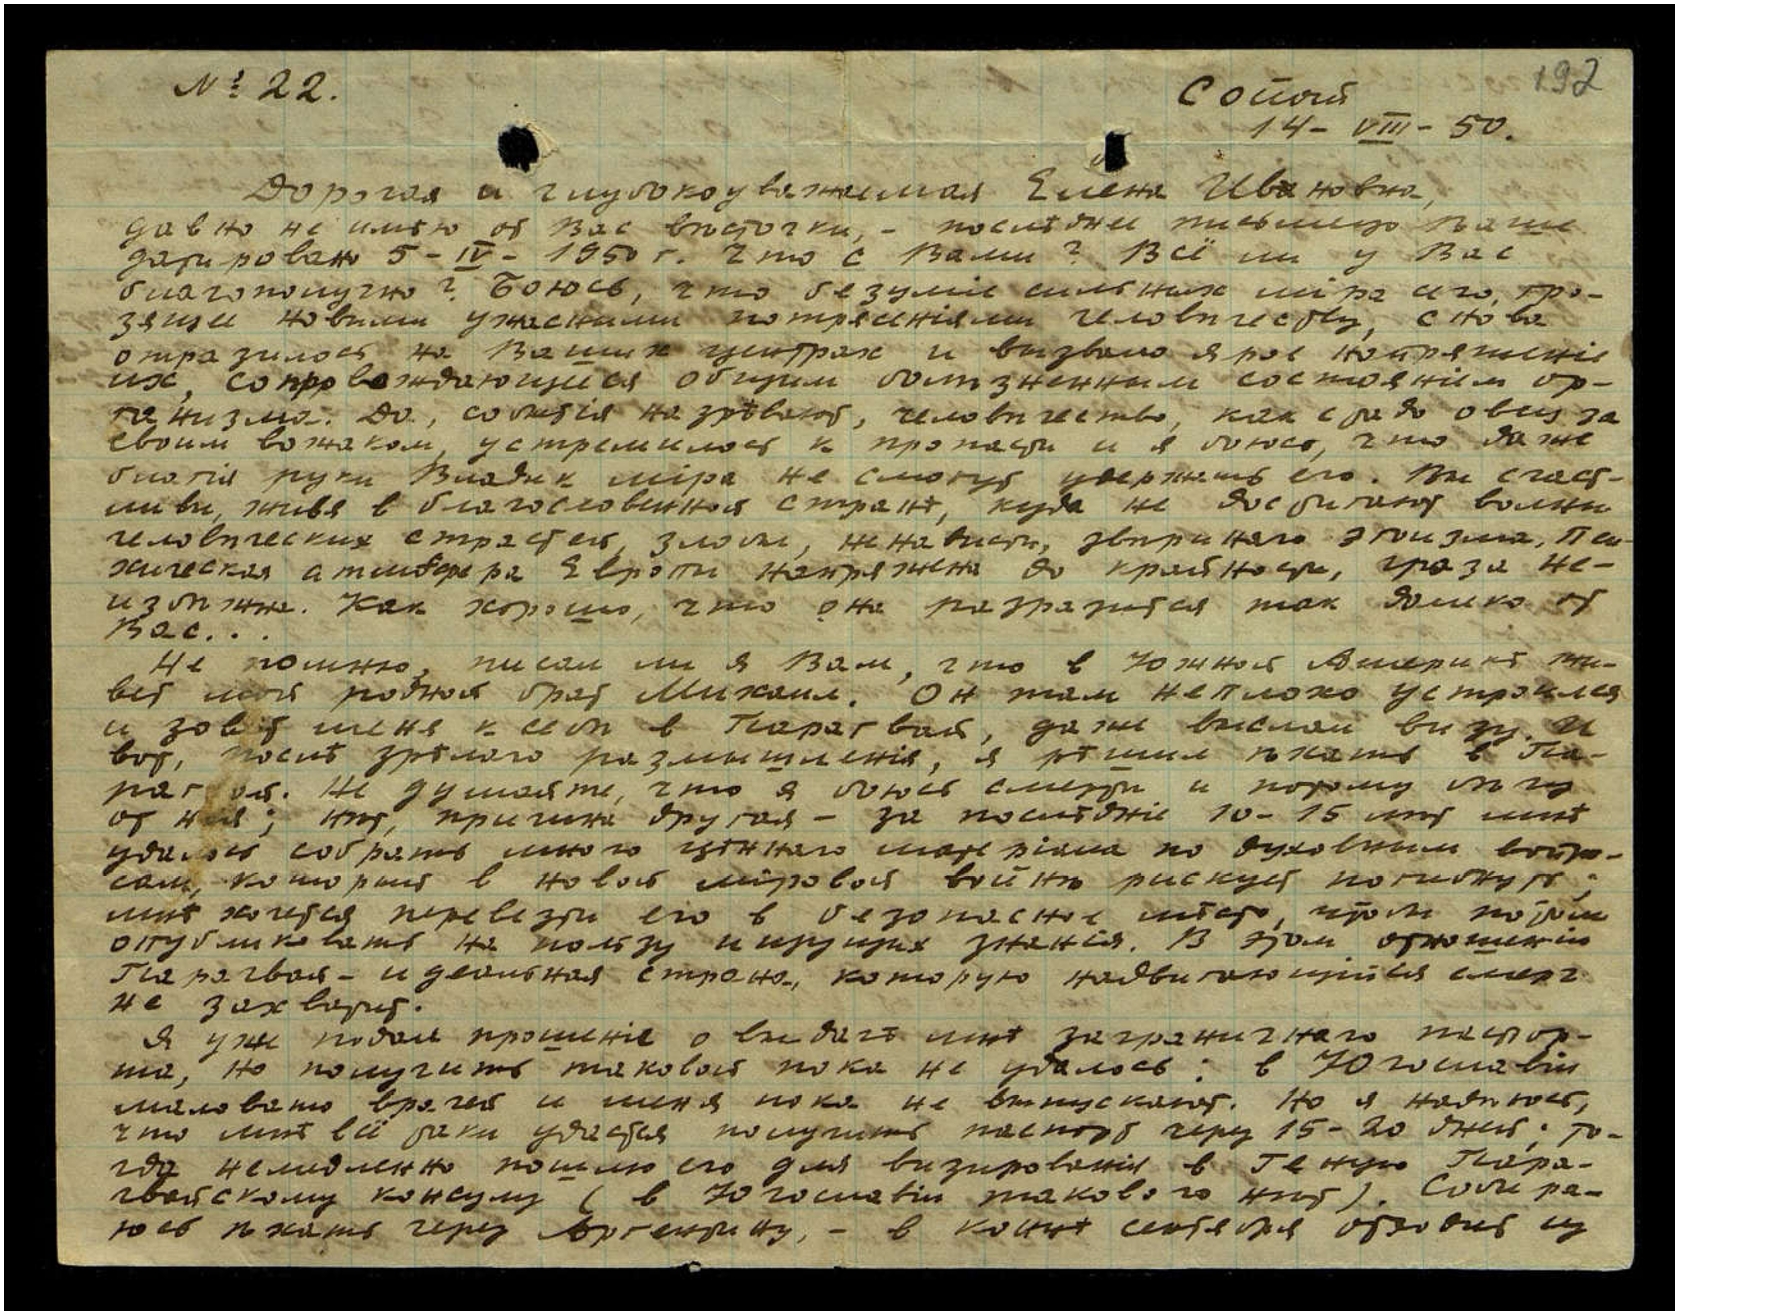 № 22.
192
Сопот
14 - VIII - 50.
Дорогая и глубокоуважаемая Елена Ивановна,
давно не имѣю от Вас вѣсточки, - послѣднее письмецо Ваше
датировано 5 - IV - 1950 г. Что с Вами? Всё ли у Вас
благополучно? Боюсь, что безуміе сильных міра сего, гро-
зящее новыми ужасными потрясеніями человѣчеству, снова
отразилось на Ваших центрах и вызвало ярое напряженіе
их, сопровождающееся общим болѣзненным состояніем ор-
ганизма. Да, событія назрѣвают, человѣчество, как стадо овец за
своим вожаком, устремилось к пропасти и я боюсь, что даже
благія руки Владык міра не смогут удержать его. Вы счаст-
ливы, живя в благословенной странѣ, куда не достигают волны
человѣческих страстей, злобы, ненависти, звѣринаго эгоизма. Пси-
хическая атмосфера Европы напряжена до крайности, гроза не-
избѣжна. Как хорошо, что она разразится так далеко от
Вас...
Не помню, писал ли я Вам, что в Южной Америкѣ жи-
вет мой родной брат Михаил. Он там неплохо устроился
и зовет меня к себѣ в Парагвай, даже выслал визу. И
вот, послѣ зрѣлаго размышленія, я рѣшил ѣхать в Па-
рагвай. Не думайте, что я боюсь смерти и потому бѣгу
от нея; нѣт, причина другая - за послѣдніе 10 - 15 лѣт мнѣ
удалось собрать много цѣннаго матеріала по духовным вопро-
сам, который в новой міровой войнѣ рискует погибнуть;
мнѣ хочется перевезти его в безопасное мѣсто, чтобы потом
опубликовать на пользу ищущих знанія. В этом отношеніи
Парагвай - идеальная страна, которую надвигающийся смерч
не захватит.
Я уже подал прошеніе о выдачѣ мнѣ заграничнаго паспор-
та, но получить таковой пока не удалось: в Югославіи
маловато врачей и меня пока не выпускают. Но я надѣюсь,
что мнѣ всё таки удастся получить паспорт через 15 - 20 дней; то-
гда немедленно пошлю его для визированія в Геную Пара-
гвайскому консулу (в Югославіи такового нѣт). Собира-
юсь ѣхать через Аргентину, - в концѣ сентября отходит из